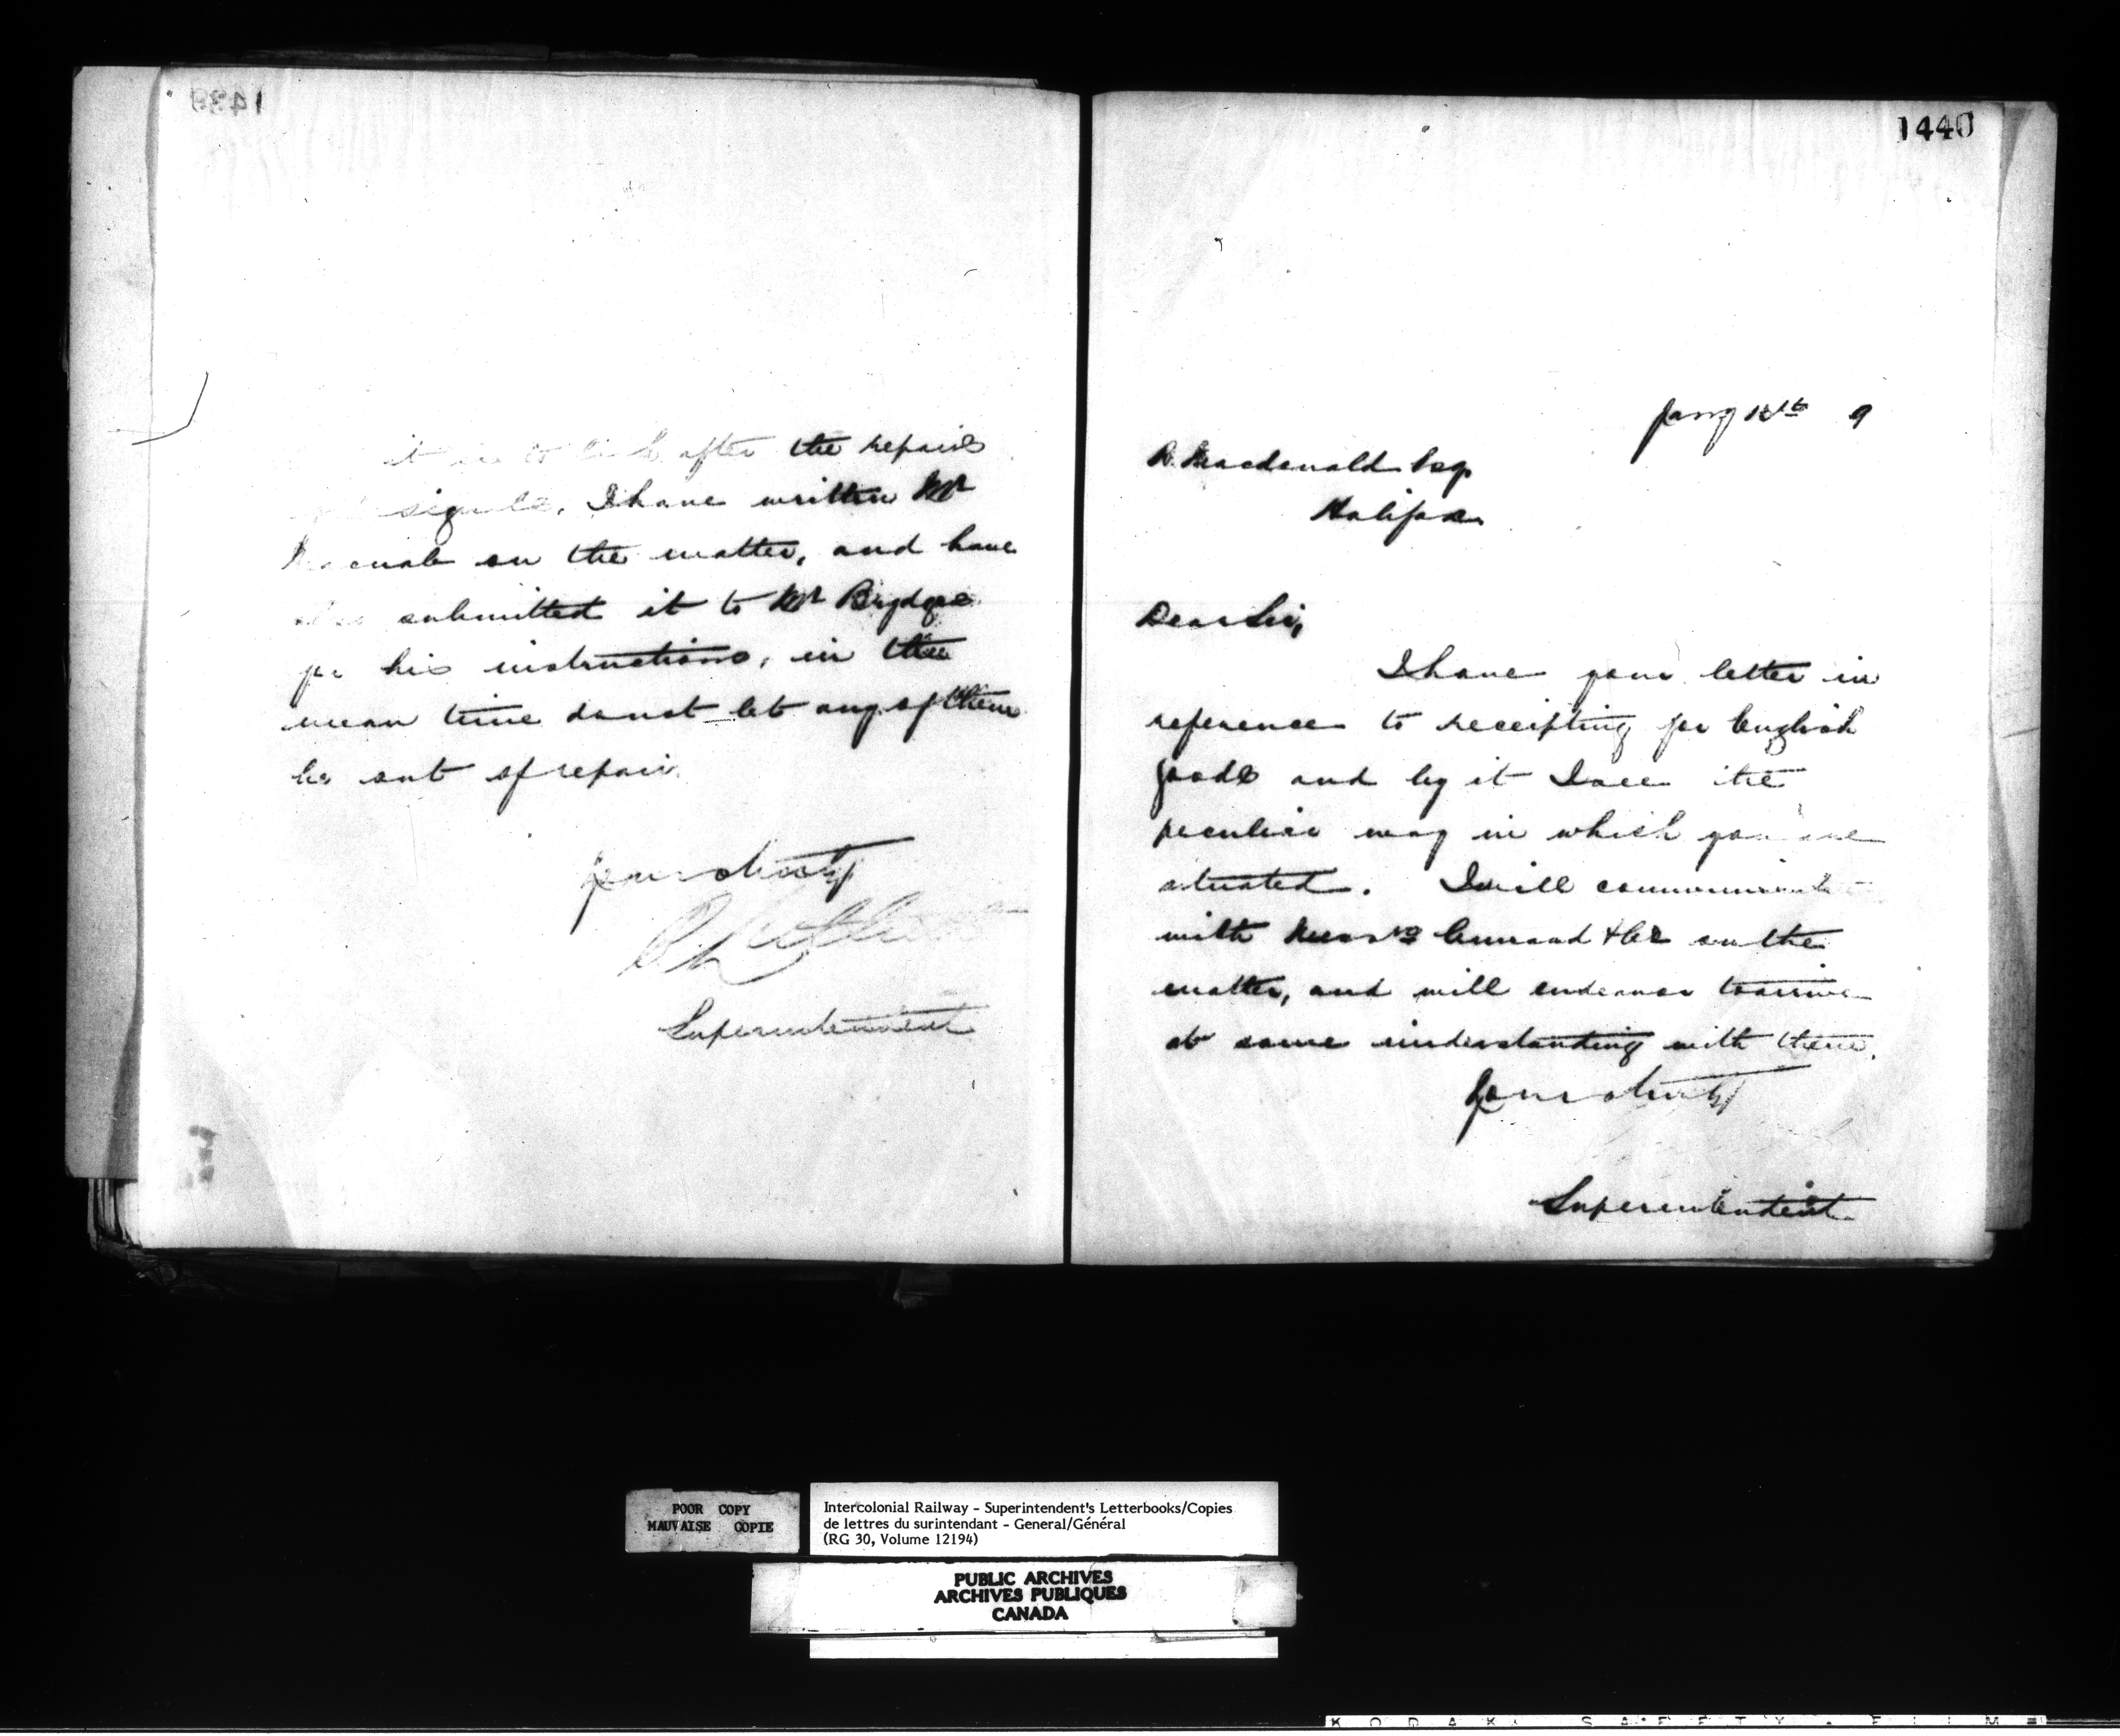 1439
it is to look after the repairs
signals, I have written Mr
on the matter, and have
also submitted it to Mr Brydges
for his instructions, in the
mean time do not let any of them
be out of repair
Yours truly
Superintendent
1440
Jany 9
D. Macdonald Esq
Halifax
Dear Sir,
I have your letter in
reference to receipting for English
goods and by it I see the
peculiar way in which you are
situated. I will communicate
with Messrs Cunard & Co on the
matter, and will endeavor to arrive
at some understanding with them.
Yours truly
Superintendent
POOR COPY
MAUVAISE COPIE
Intercolonial Railway - Superintendent's Letterbooks/Copies
de lettres du surintendant - General/Général
(RG 30, Volume 12194)
PUBLIC ARCHIVES
ARCHIVES PUBLIQUES
CANADA
KODAK SAFETY FILM